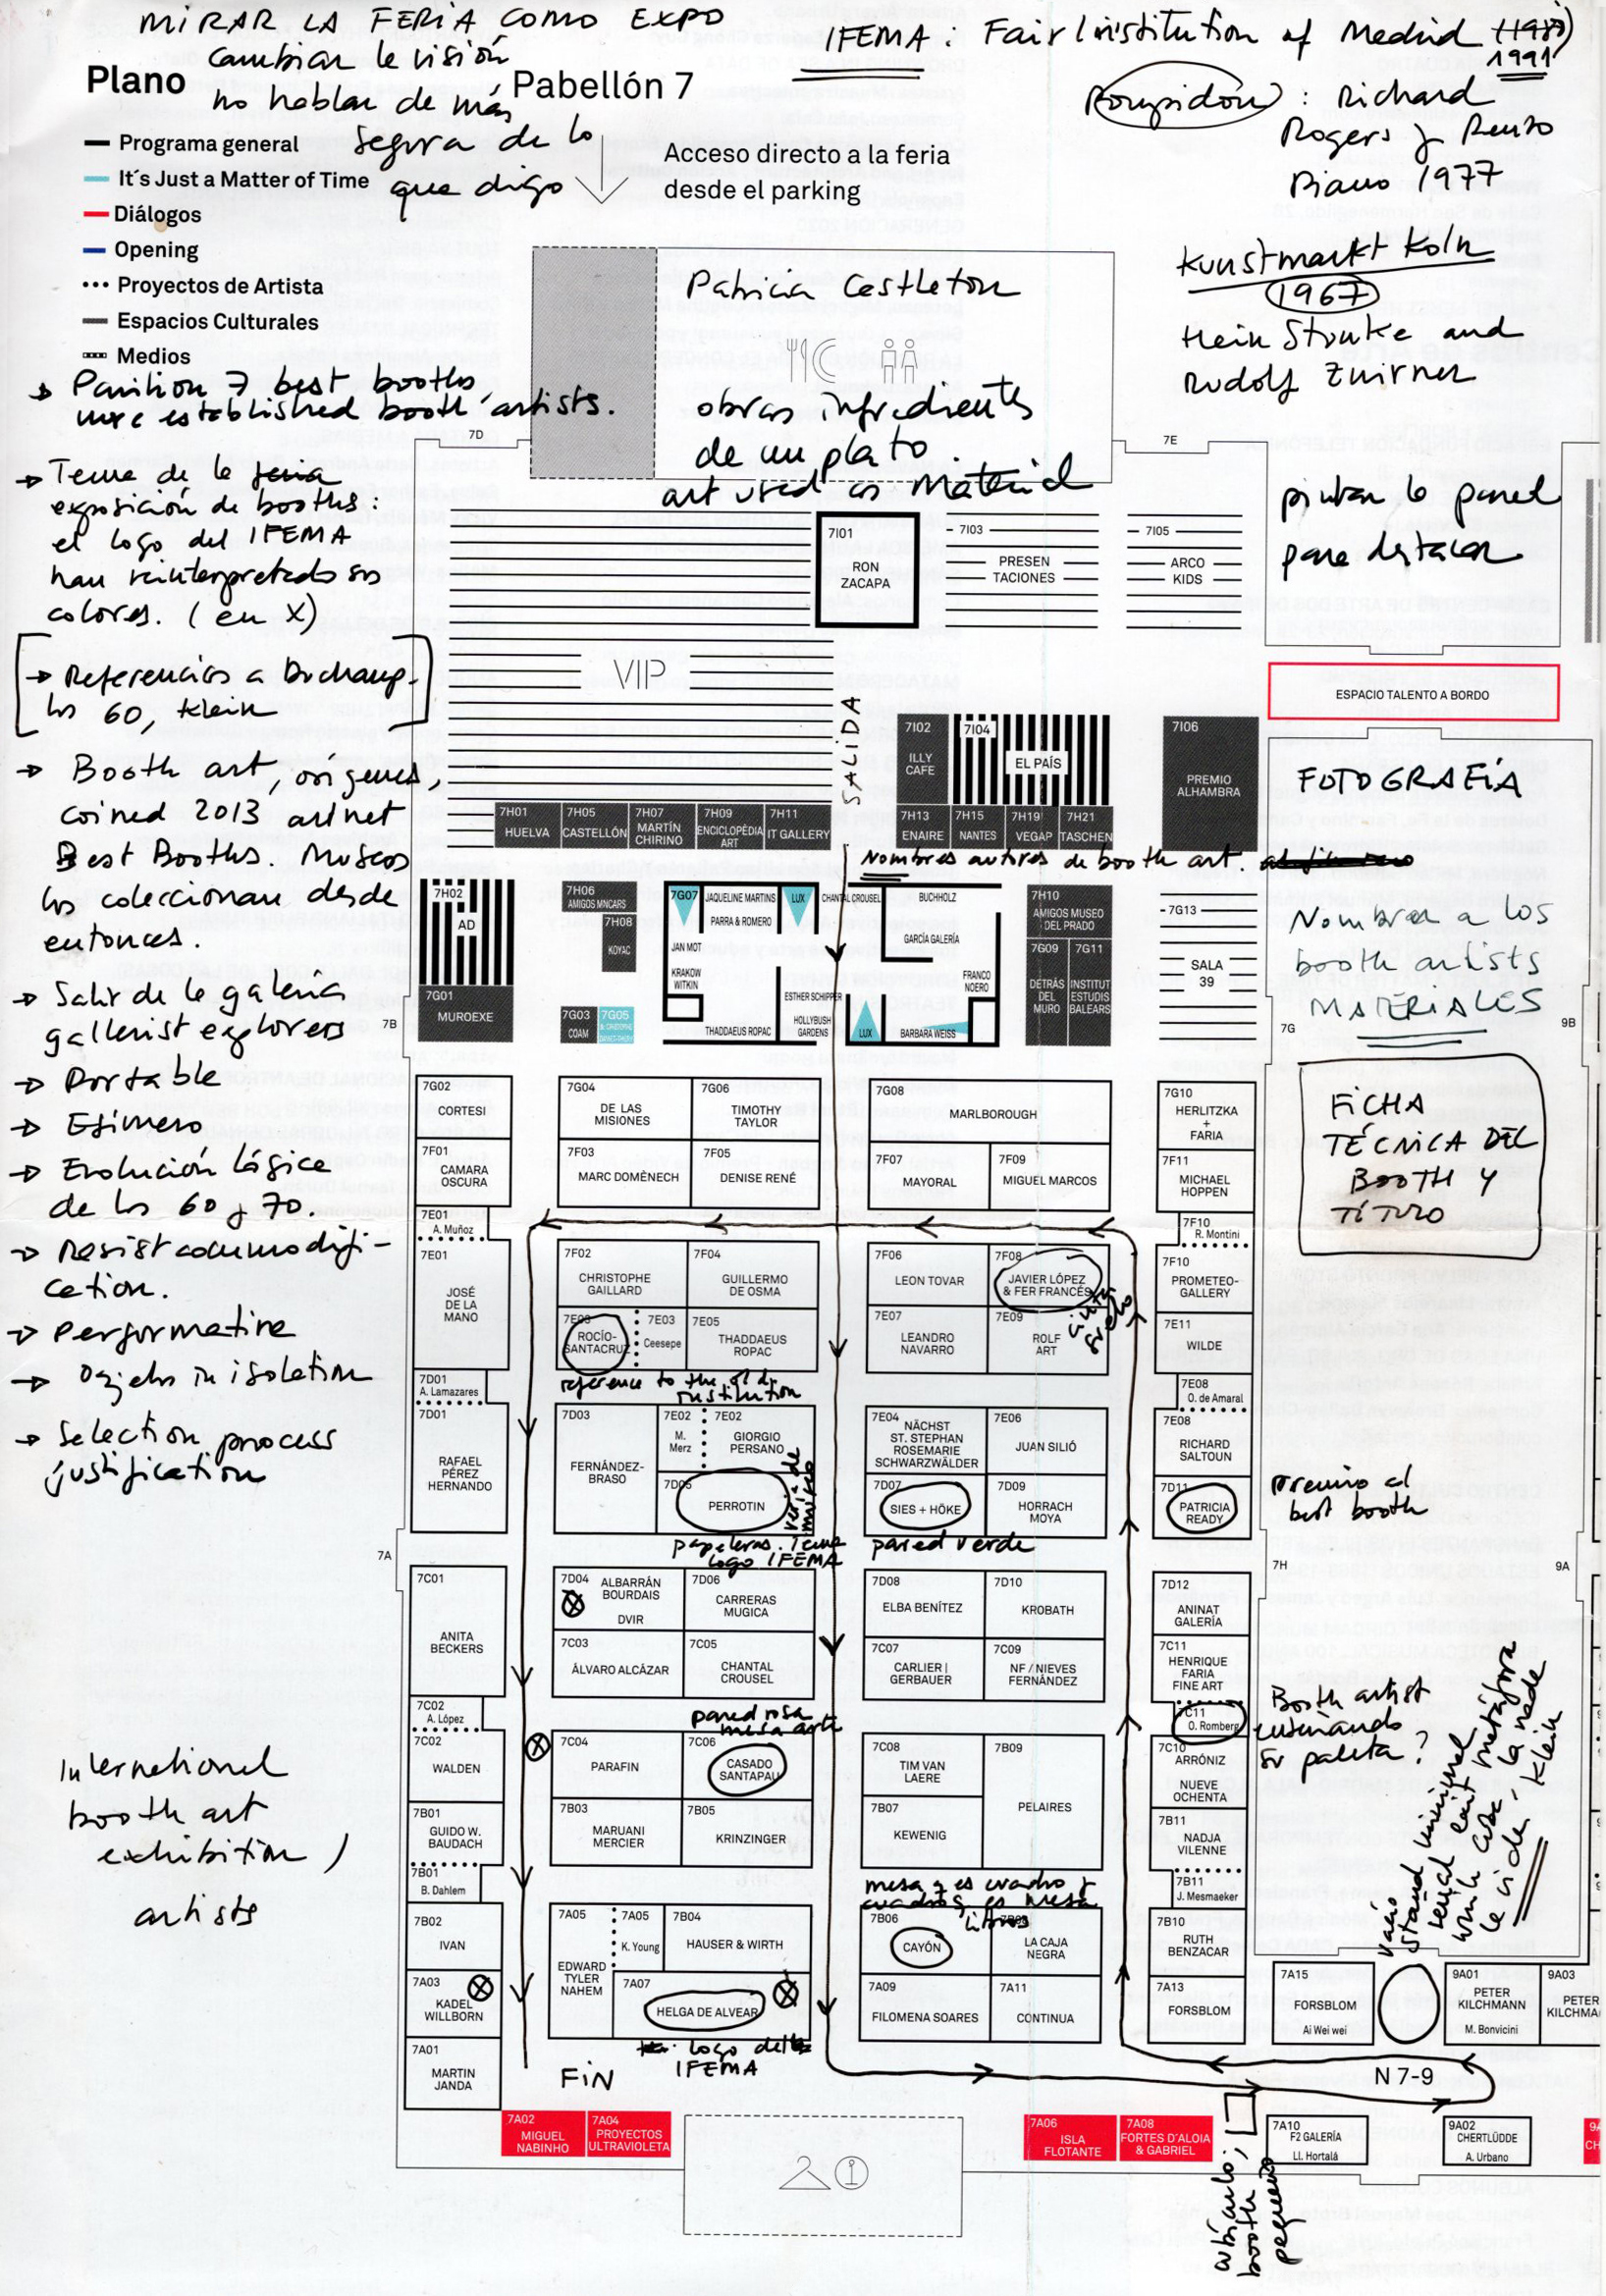 MIRAR LA FERIA COMO EXPO
cambiar le visión
no hablar de más
segura de lo
que digo
IFEMA: Fair Institution of Madrid (1980)
1991
Pompidou: Richard
Rogers y Renzo
Piano 1977
Kunstmarkt Koln
1967
Hein Stünke and
Rudolf Zwirner
Plano
Pabellón 7
Programa general
It´s Just a Matter of Time
Diálogos
Opening
Proyectos de Artista
Espacios Culturales
Medios
Acceso directo a la feria
desde el parking
Patricia Castleton
obras ingredientes
de un plato.
art used as Material
→ Pavilion 7 best booths
more established booth artists.
7D
7E
→ Tema de la feria
exposición de booths:
el logo del IFEMA
han reinterpretado sus
colores. (en X)
→ Referencias a Duchamp-
los 60, Klein
→ Booth art, orígenes,
coined 2013 artnet
Best Booths. Museos
los coleccionan desde
entonces.
→ Salir de la galería
gallerist explorers
→ Portable
→ Efímero
→ Evolución lógica
de los 60 y 70.
→ Resist commodifi-
cation.
→ Performative
→ Objects in isolation
→ Selection process
justification
International
booth art
exhibition /
artists
pintan la pared
para destacar
7I01
RON
ZACAPA
7I03
PRESEN
TACIONES
7I05
ARCO
KIDS
ESPACIO TALENTO A BORDO
VIP
SALIDA
7I02
ILLY
CAFE
7I04
EL PAÍS
7I06
PREMIO
ALHAMBRA
FOTOGRAFÍA
7H01
HUELVA
7H05
CASTELLÓN
7H07
MARTÍN
CHIRINO
7H09
ENCICLOPÉDIA
ART
7H11
IT GALLERY
7H13
ENAIRE
7H15
NANTES
7H19
VEGAP
7H21
TASCHEN
Nombres autores de booth art.
7H02
AD
7G01
MUROEXE
7B
7H06
AMIGOS MNCARS
7H08
KOYAC
7G03
COAM
7G05
7G07
JAQUELINE MARTINS
PARRA & ROMERO
LUX
CHANTAL CROUSEL
BUCHHOLZ
JAN MOT
KRAKOW
WITKIN
GARCÍA GALERÍA
FRANCO
NOERO
ESTHER SCHIPPER
HOLLYBUSH
GARDENS
THADDAEUS ROPAC
LUX
BARBARA WEISS
7H10
AMIGOS MUSEO
DEL PRADO
7G09
DETRÁS
DEL
MURO
7G11
INSTITUT
ESTUDIS
BALEARS
7G13
SALA
39
7G
9B
Nombrar a los
booth artists
MATERIALES
FICHA
TÉCNICA DEL
BOOTH Y
TÍTULO
7G02
CORTESI
7G04
DE LAS
MISIONES
7G06
TIMOTHY
TAYLOR
7G08
MARLBOROUGH
7G10
HERLITZKA
+
FARIA
7F01
CAMARA
OSCURA
7F03
MARC DOMÈNECH
7F05
DENISE RENÉ
7F07
MAYORAL
7F09
MIGUEL MARCOS
7F11
MICHAEL
HOPPEN
7E01
A. Muñoz
7F10
R. Montini
7E01
JOSÉ
DE LA
MANO
7F02
CHRISTOPHE
GAILLARD
7F04
GUILLERMO
DE OSMA
7F06
LEON TOVAR
7F08
JAVIER LÓPEZ
& FER FRANCÉS
cinta
suelo
7F10
PROMETEO-
GALLERY
7E03
ROCÍO-
SANTACRUZ
7E03
Ceesepe
7E05
THADDAEUS
ROPAC
7E07
LEANDRO
NAVARRO
7E09
ROLF
ART
7E11
WILDE
reference to the old
institution
7D01
A. Lamazares
7E08
O. de Amaral
7D01
RAFAEL
PÉREZ
HERNANDO
7D03
FERNÁNDEZ-
BRASO
7E02
M.
Merz
7E02
GIORGIO
PERSANO
7D05
PERROTIN
papeleras. Tema
logo IFEMA
7E04
NÄCHST
ST. STEPHAN
ROSEMARIE
SCHWARZWÄLDER
7E06
JUAN SILIÓ
7D07
SIES + HÖKE
7D09
HORRACH
MOYA
pared verde
7E08
RICHARD
SALTOUN
7D11
PATRICIA
READY
premio al
best booth
7A
7H
9A
7C01
ANITA
BECKERS
7D04
ALBARRÁN
BOURDAIS
DVIR
7D06
CARRERAS
MUGICA
7D08
ELBA BENÍTEZ
7D10
KROBATH
7D12
ANINAT
GALERÍA
7C03
ÁLVARO ALCÁZAR
7C05
CHANTAL
CROUSEL
7C07
CARLIER |
GERBAUER
7C09
NF / NIEVES
FERNÁNDEZ
7C11
HENRIQUE
FARIA
FINE ART
7C11
O. Romberg
Booth artist
enseñando
su paleta?
7C02
A. López
pared rosa
mesa arte
7C02
WALDEN
7C04
PARAFIN
7C06
CASADO
SANTAPAU
7C08
TIM VAN
LAERE
7B09
PELAIRES
7C10
ARRÓNIZ
NUEVE
OCHENTA
7B01
GUIDO W.
BAUDACH
7B03
MARUANI
MERCIER
7B05
KRINZINGER
7B07
KEWENIG
7B11
NADJA
VILENNE
7B01
B. Dahlem
7B11
J. Mesmaeker
vacío
stand minimal
metáfora
white cube, la nada
Klein
mesa q es cuadro y
cuadro q es mesa
libros
7B02
IVAN
7A05
EDWARD
TYLER
NAHEM
7A05
K. Young
7B04
HAUSER & WIRTH
7B06
CAYÓN
LA CAJA
NEGRA
7B10
RUTH
BENZACAR
7A03
KADEL
WILLBORN
7A07
HELGA DE ALVEAR
7A09
FILOMENA SOARES
7A11
CONTINUA
7A13
FORSBLOM
7A15
FORSBLOM
Ai Wei wei
9A01
PETER
KILCHMANN
M. Bonvicini
9A03
PETER
KILCHMA
7A01
MARTIN
JANDA
FIN
logo del
IFEMA
N 7-9
7A02
MIGUEL
NABINHO
7A04
PROYECTOS
ULTRAVIOLETA
7A06
ISLA
FLOTANTE
7A08
FORTES D'ALOIA
& GABRIEL
7A10
F2 GALERÍA
Ll. Hortalá
9A02
CHERTLÜDDE
A. Urbano
9A
CH
cubículo;
booth
pequeño